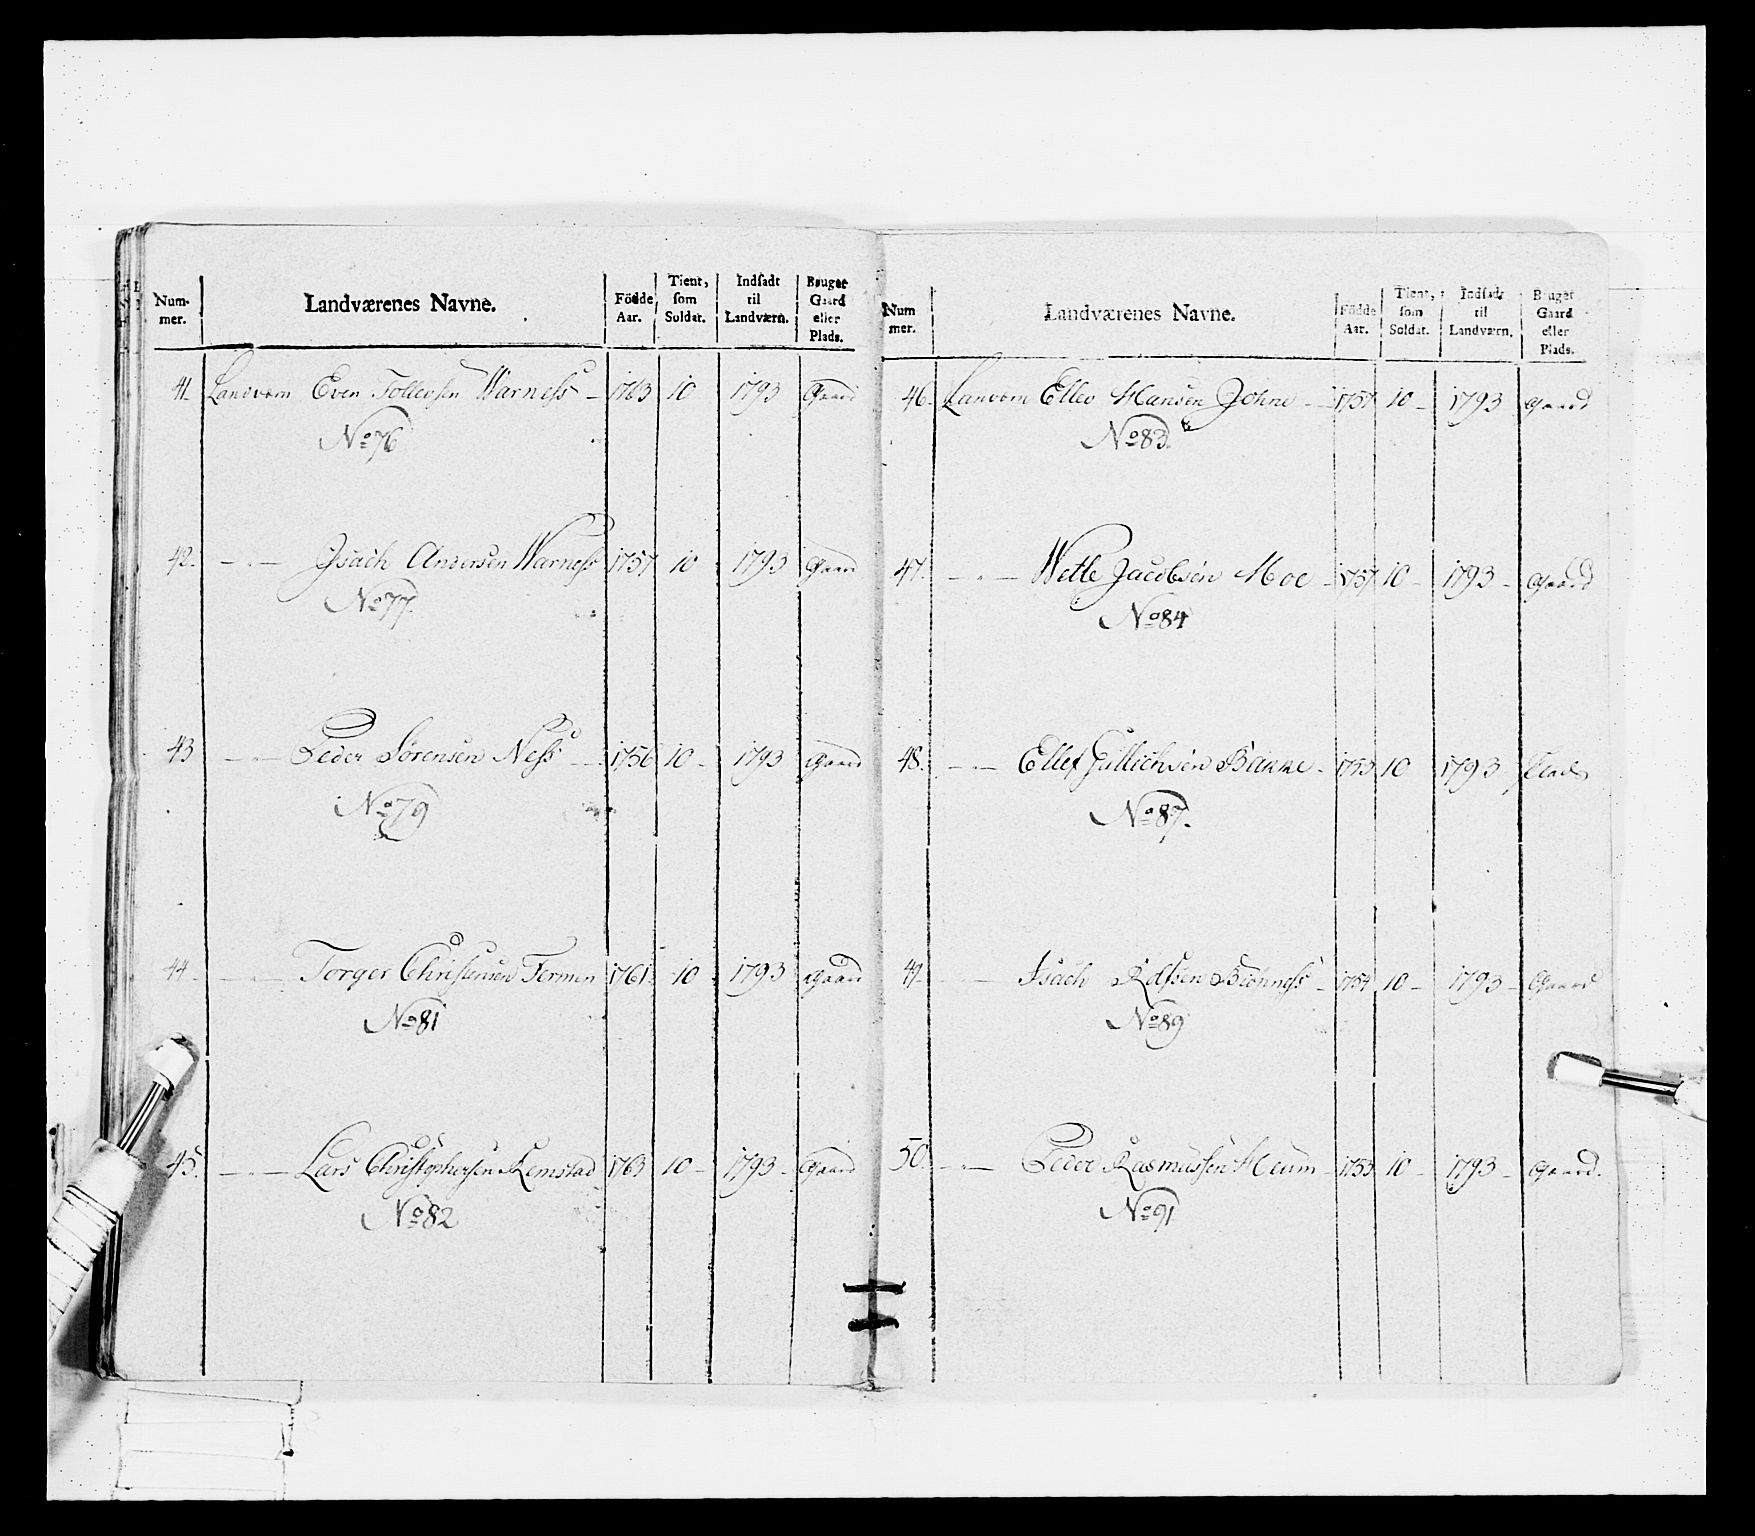 Num-
mer.
Landværenes Navne.
Födde
Aar.
Tient,
som
Soldat.
Indsadt
til
Landværn.
Bruger
Gaard
eller
Plads.
41. Landværn Even Tollevsen Warness 1763 10 1793 Gaard
No 76
42. Isach Andersen Warness 1757 10 1793 Gaard
No 77.
43 Peder Sørensen Ness 1756 10 1793 Gaard
No 79
44 Torger Christensen Fermen 1761 10 1793 Gaard
No 81
45. Lars Christophersen Remstad 1763 10 1793 Gaard
No 82
Num
mer.
Landværenes Navne.
Födde
Aar.
Tient,
som
Soldat.
Indsadt
til
Landværn.
Bruger
Gaard
eller
Plads.
46. Lanværn Ellev Hansen 1757 10 1793 Gaard
No 83.
47. Wetle Jacobsen Moe 1757 10 1793 Gaard
No 84
48. Ellef Gullichsen Bakke 1753 10 1793 Plads
No 87.
49. Isach Biönness 1754 10 1793 Gaard
No 89
50. Peder Rasmussen Heum 1753 10 1793 Gaard.
No 91